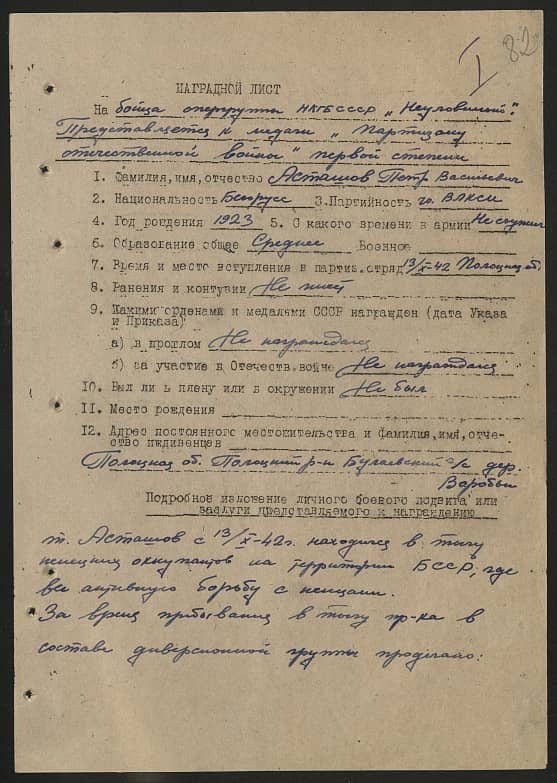 I 82
НАГРАДНОЙ ЛИСТ
На бойца опергруппы НКГБ БССР „Неуловимый".
Представляется к медали „Партизану
отечественной войны" первой степени
1. Фамилия,имя,отчество Асташов Петр Васильевич
2. Национальность Белорусс 3.Партийность чл. ВЛКСМ
4. Год рождения 1923 5. С какого времени в армии Не служил
6. Образование общее Среднее Военное
7. Время и место вступления в партиз.отряд 13/X-42 Полоцкая об.
8. Ранения и контузии Не имеет
9. Какими орденами и медалями СССР награжден (дата Указа
и Приказа)
а) в прошлом Не награждался
б) за участие в Отечеств.войне Не награждался
10. Был ли в плену или в окружении Не был
11. Место рождения
12. Адрес постоянного местожительства и фамилия,имя,отче-
ство иждивенцев
Полоцкая об. Полоцкий р-н Булаевский с/с дер.
Воробьи
Подробное изложение личного боевого подвига или
заслуги представляемого к награждению
т. Асташов с 13/X-42г. находился в тылу
немецких оккупантов на территории БССР, где
вел активную борьбу с немцами.
За время пребывания в тылу пр-ка в
составе диверсионной группы проделано: